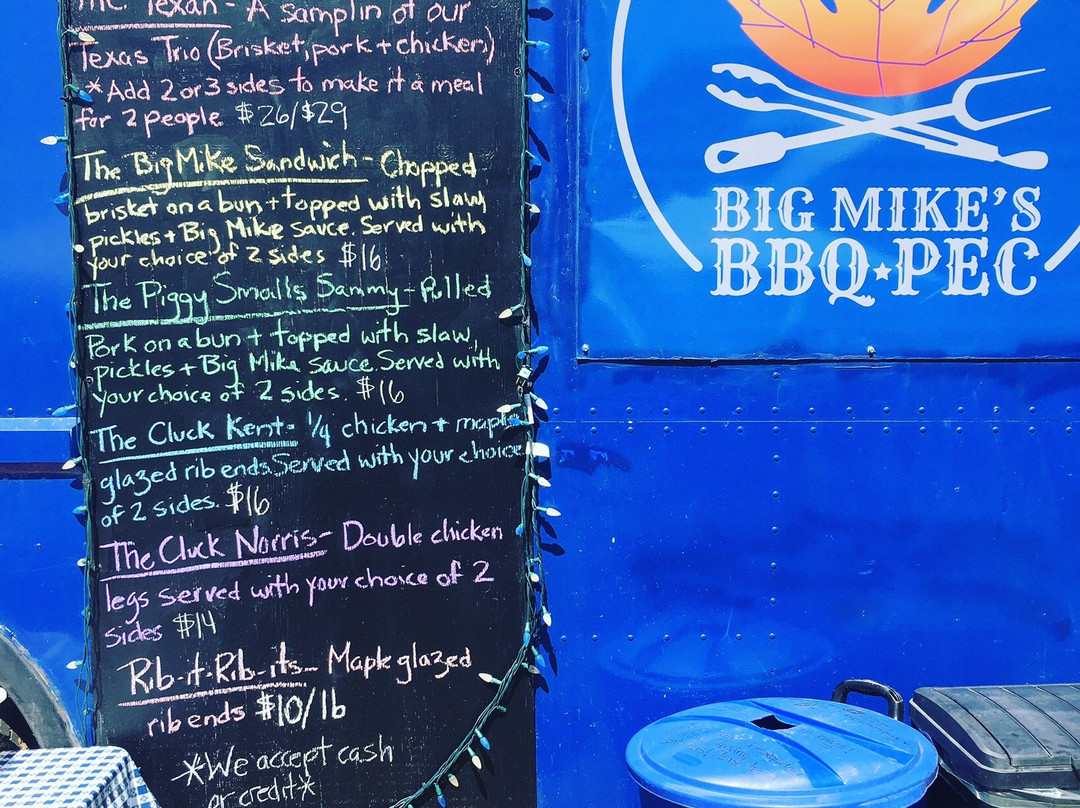 The Texan - A samplin of our
Texas Trio (Brisket, pork + chicken)
*Add 2 or 3 sides to make it a meal
for 2 people $26/$29
The Big Mike Sandwich - Chopped
brisket on a bun + topped with slaw,
pickles + Big Mike sauce. Served with
your choice of 2 sides $16
The Piggy Smalls Sammy - Pulled
Pork on a bun + topped with slaw,
pickles + Big Mike sauce. Served with
your choice of 2 sides. $16
The Cluck Kent - 1/4 chicken + maple
glazed rib ends. Served with your choice
of 2 sides. $16
The Cluck Norris - Double chicken
legs served with your choice of 2
sides $14
Rib-it-Rib-its - Maple glazed
rib ends $10/lb
*We accept cash
or credit*
BIG MIKE'S
BBQ★PEC